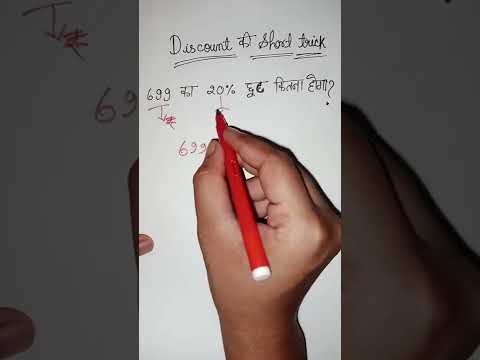 Discount की Short trick
699 का 20% छूट कितना होगा?
699